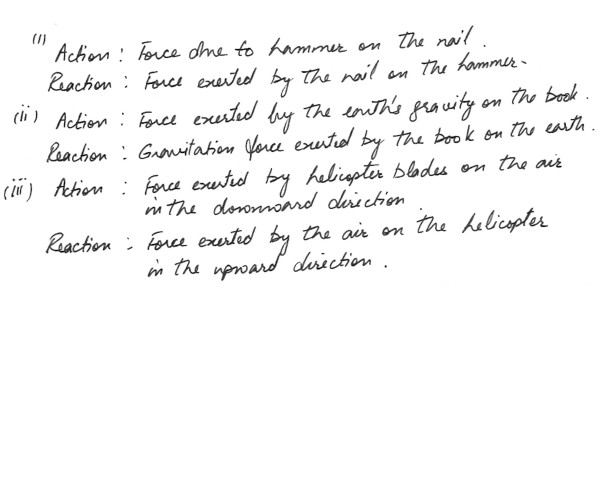 (i)
Action : Force due to hammer on the nail.
Reaction : Force exerted by the nail on the hammer.
(ii) Action : Force exerted by the earth's gravity on the book.
Reaction : Gravitation force exerted by the book on the earth.
(iii) Action : Force exerted by helicopter blades on the air
in the downward direction
Reaction : Force exerted by the air on the helicopter
in the upward direction.